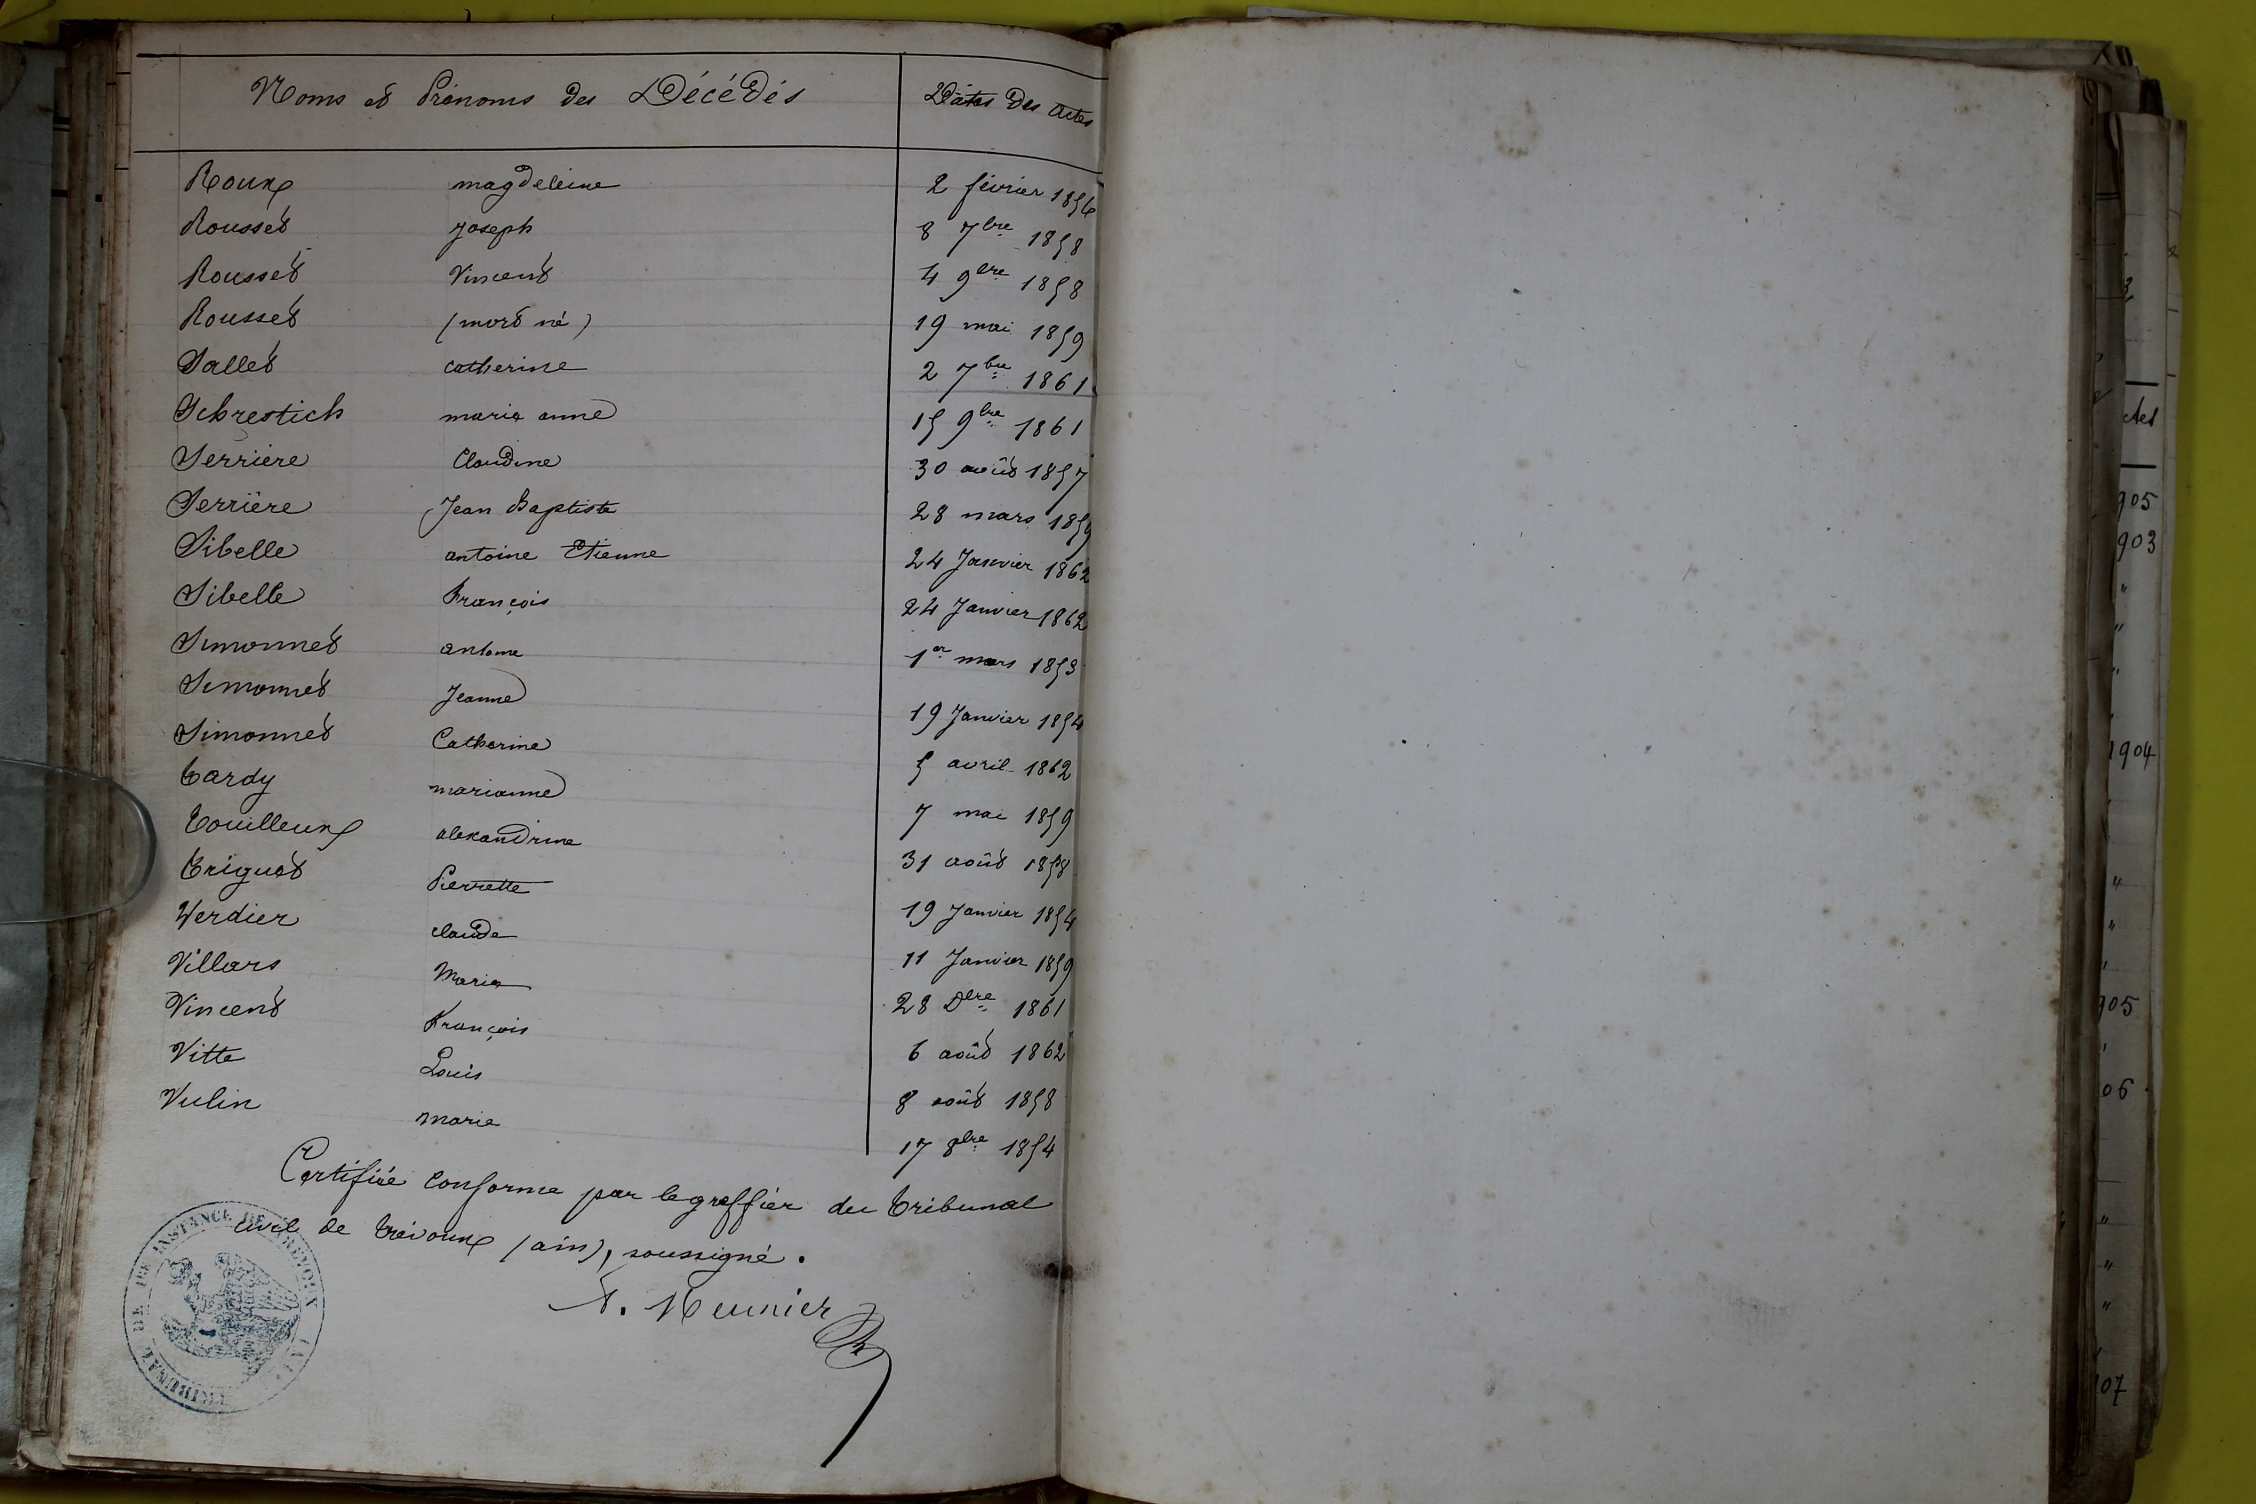 Noms et Prénoms des Décédés Dates des actes
Roux magdeleine 2 février 1856
Rousset joseph 8 7bre 1858
Rousset Vincent 4 9bre 1858
Rousset (mort né) 19 mai 1859
Sallet catherine 2 7bre 1861
Schrestich marie anne 15 9bre 1861
Serrière Claudine 30 août 1857
Serrière Jean Baptiste 28 mars 1859
Sibelle antoine Etienne 24 Janvier 1862
Sibelle François 24 Janvier 1862
Simonnet antoine 1er mars 1853
Simonnet Jeanne 19 Janvier 1854
Simonnet Catherine 5 avril 1862
Tardy marianne 7 mai 1859
Touilleux alexandrine 31 août 1858
Triguet Pierrette 19 Janvier 1854
Verdier claude 11 Janvier 1859
Villars Maria 28 Dbre 1861
Vincent François 6 août 1862
Vitte Louis 8 août 1858
Vulin marie 17 8bre 1854
Certifiée conforme par le greffier du tribunal
civil de Trévoux (ain), soussigné.
Meunier
TRIBUNAL DE 1RE INSTANCE DE TRÉVOUX
905
903
"
"
1904
"
"
905
06
"
"
"
07